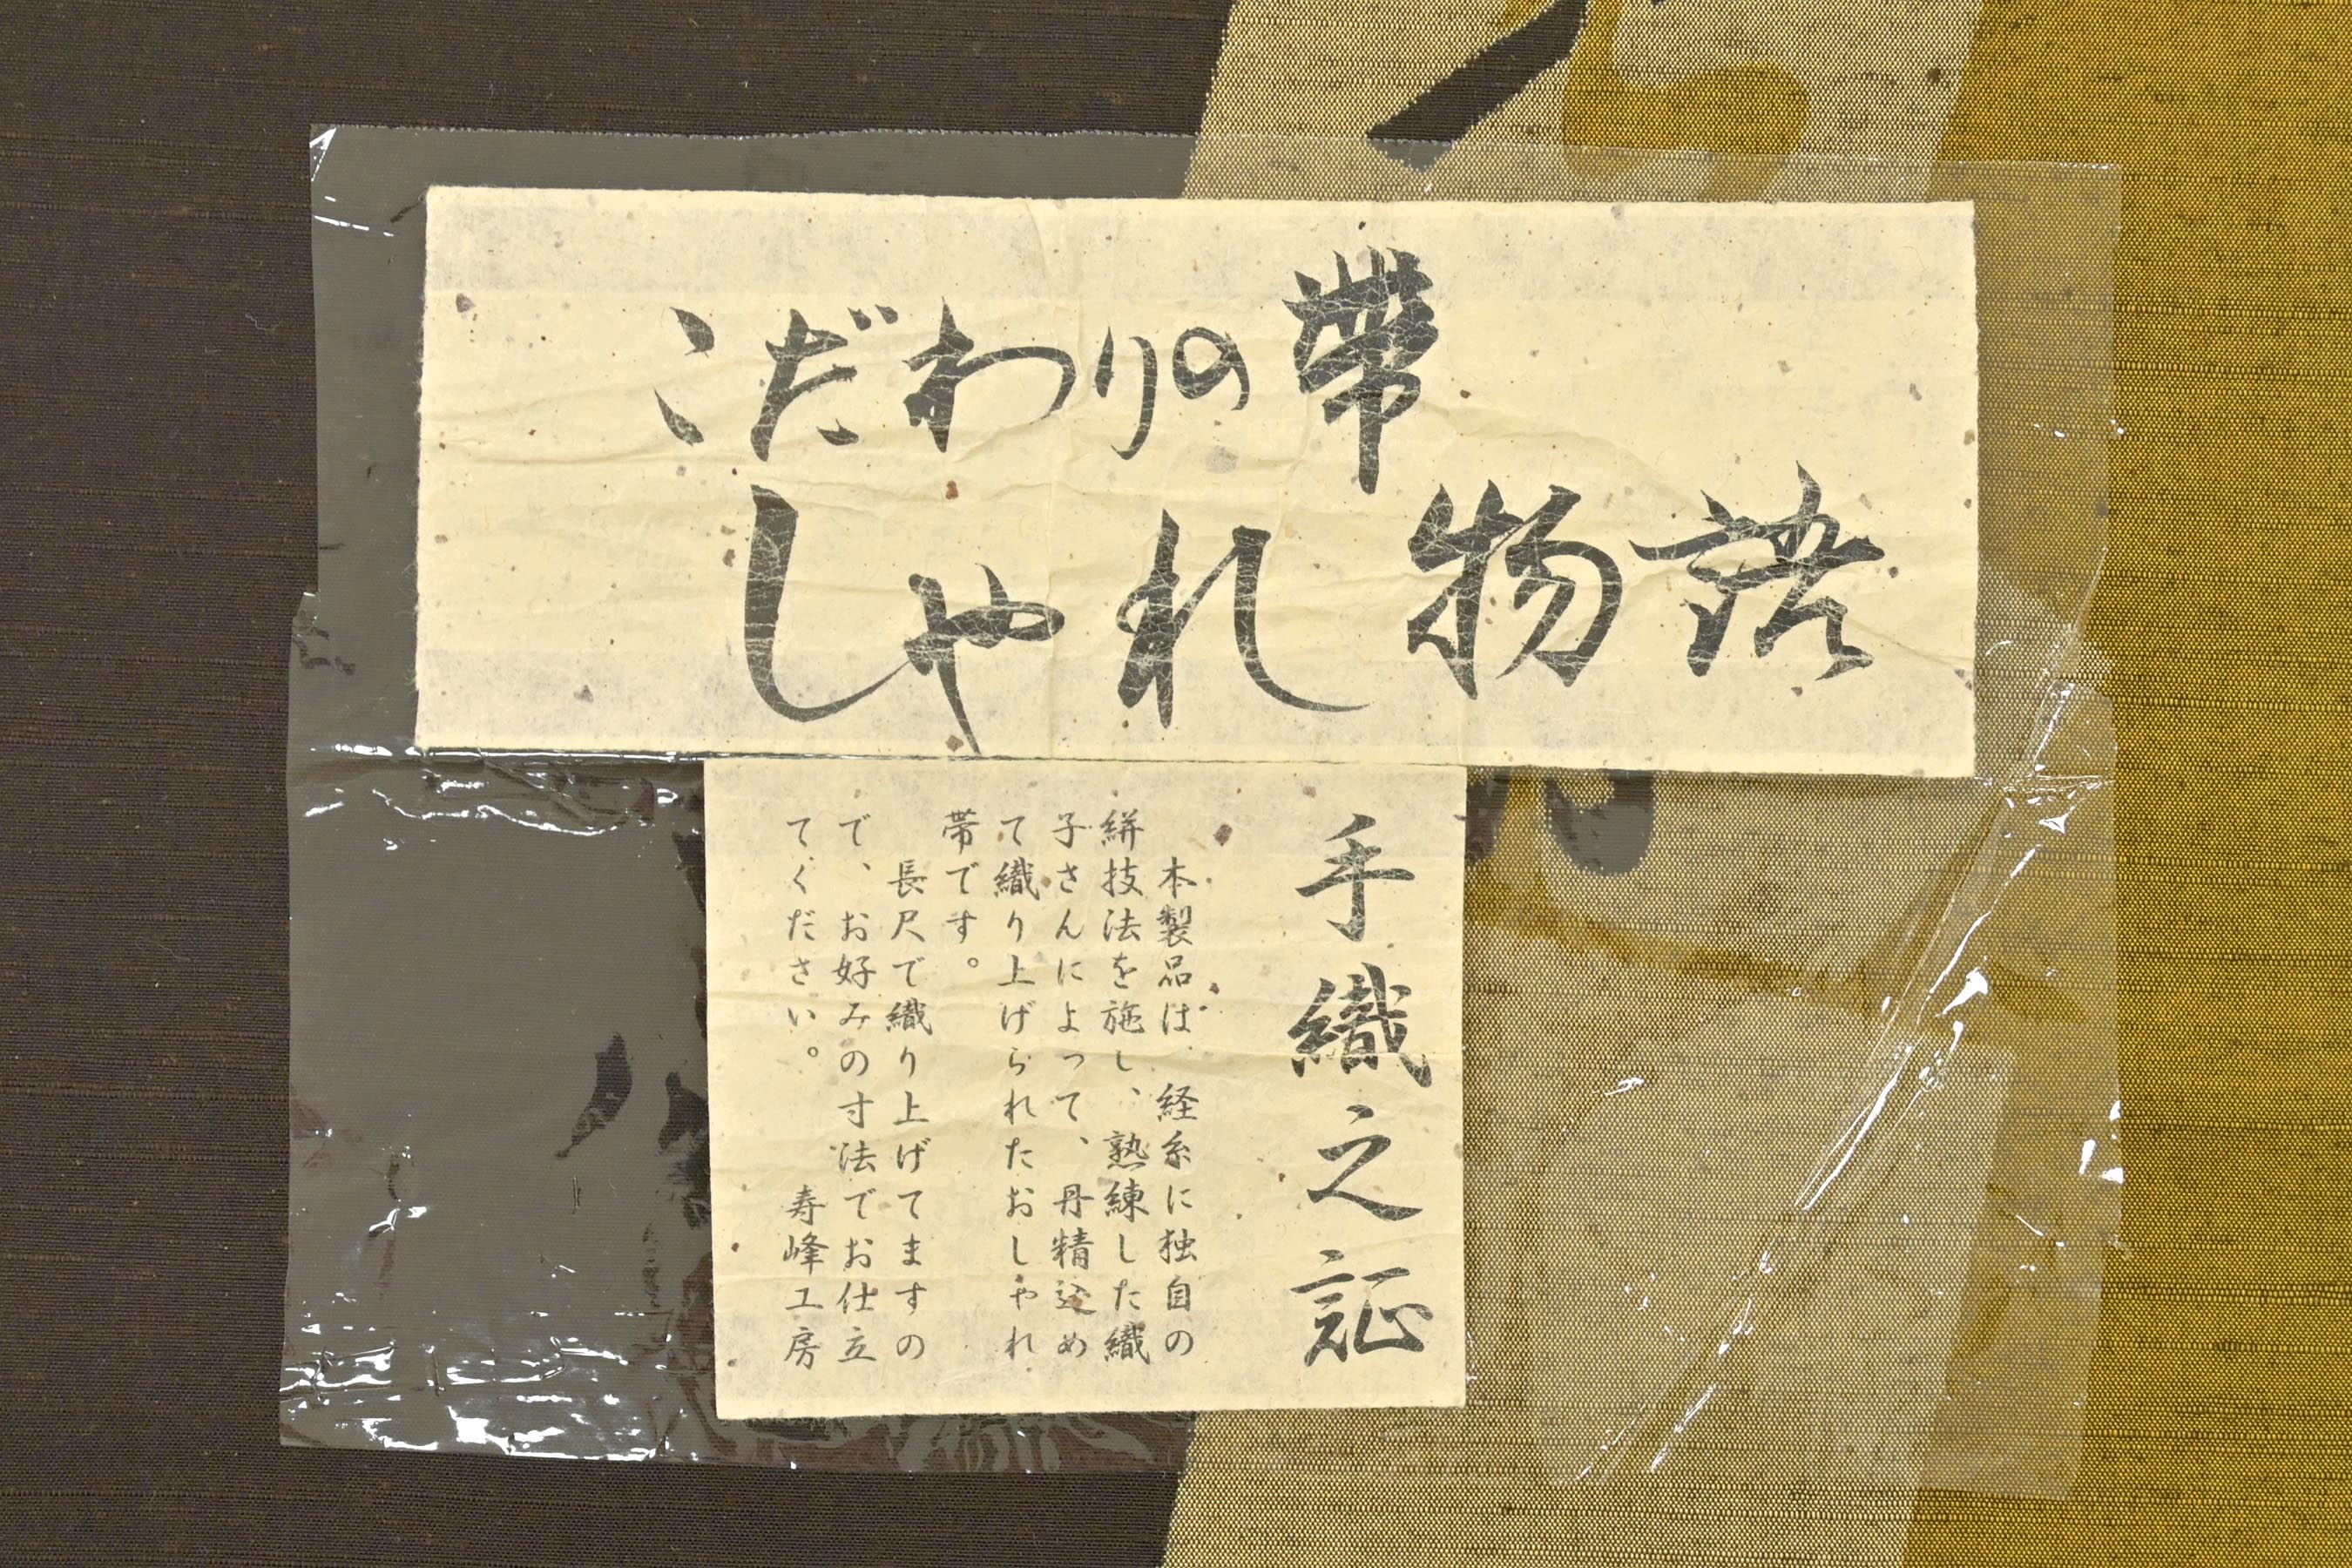 こだわりの帶
しゃれ物語
手織之証
本製品は、経糸に独自の
絣技法を施し、熟練した織
子さんによって、丹精込め
て織り上げられたおしゃれ
帯です。
長尺で織り上げてますの
で、お好みの寸法でお仕立
てください。
寿峰工房